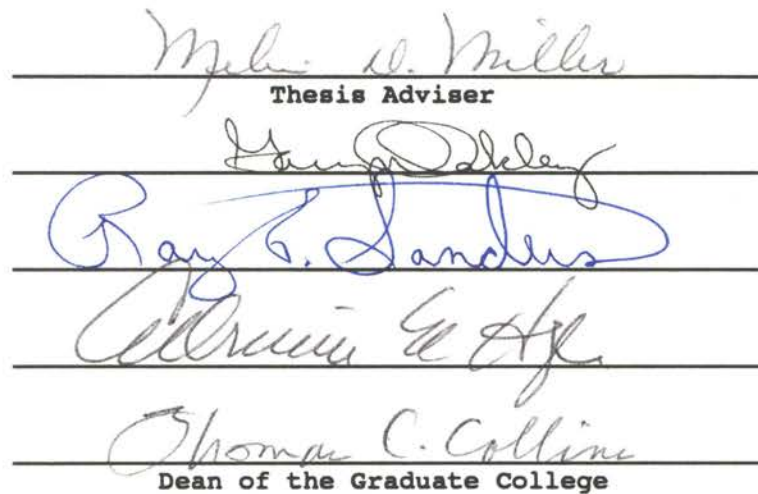 Melvin D. Miller
Thesis Adviser
Oakley
Ray E. Sanders
Adrienne E. Hyle
Thomas C. Collins
Dean of the Graduate College